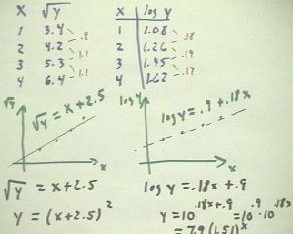 x √y
1 3.4
2 4.2 .8
3 5.3 1.1
4 6.4 1.1
x log y
1 1.08
2 1.26 .18
3 1.45 .19
4 1.62 .17
√y
√y = x+2.5
x
log y
log y = .9 + .18x
x
√y = x+2.5
y = (x+2.5)²
log y = .18x+.9
y = 10^.18x+.9 = 10^.9 · 10^.18x
= 7.9 (1.51)^x